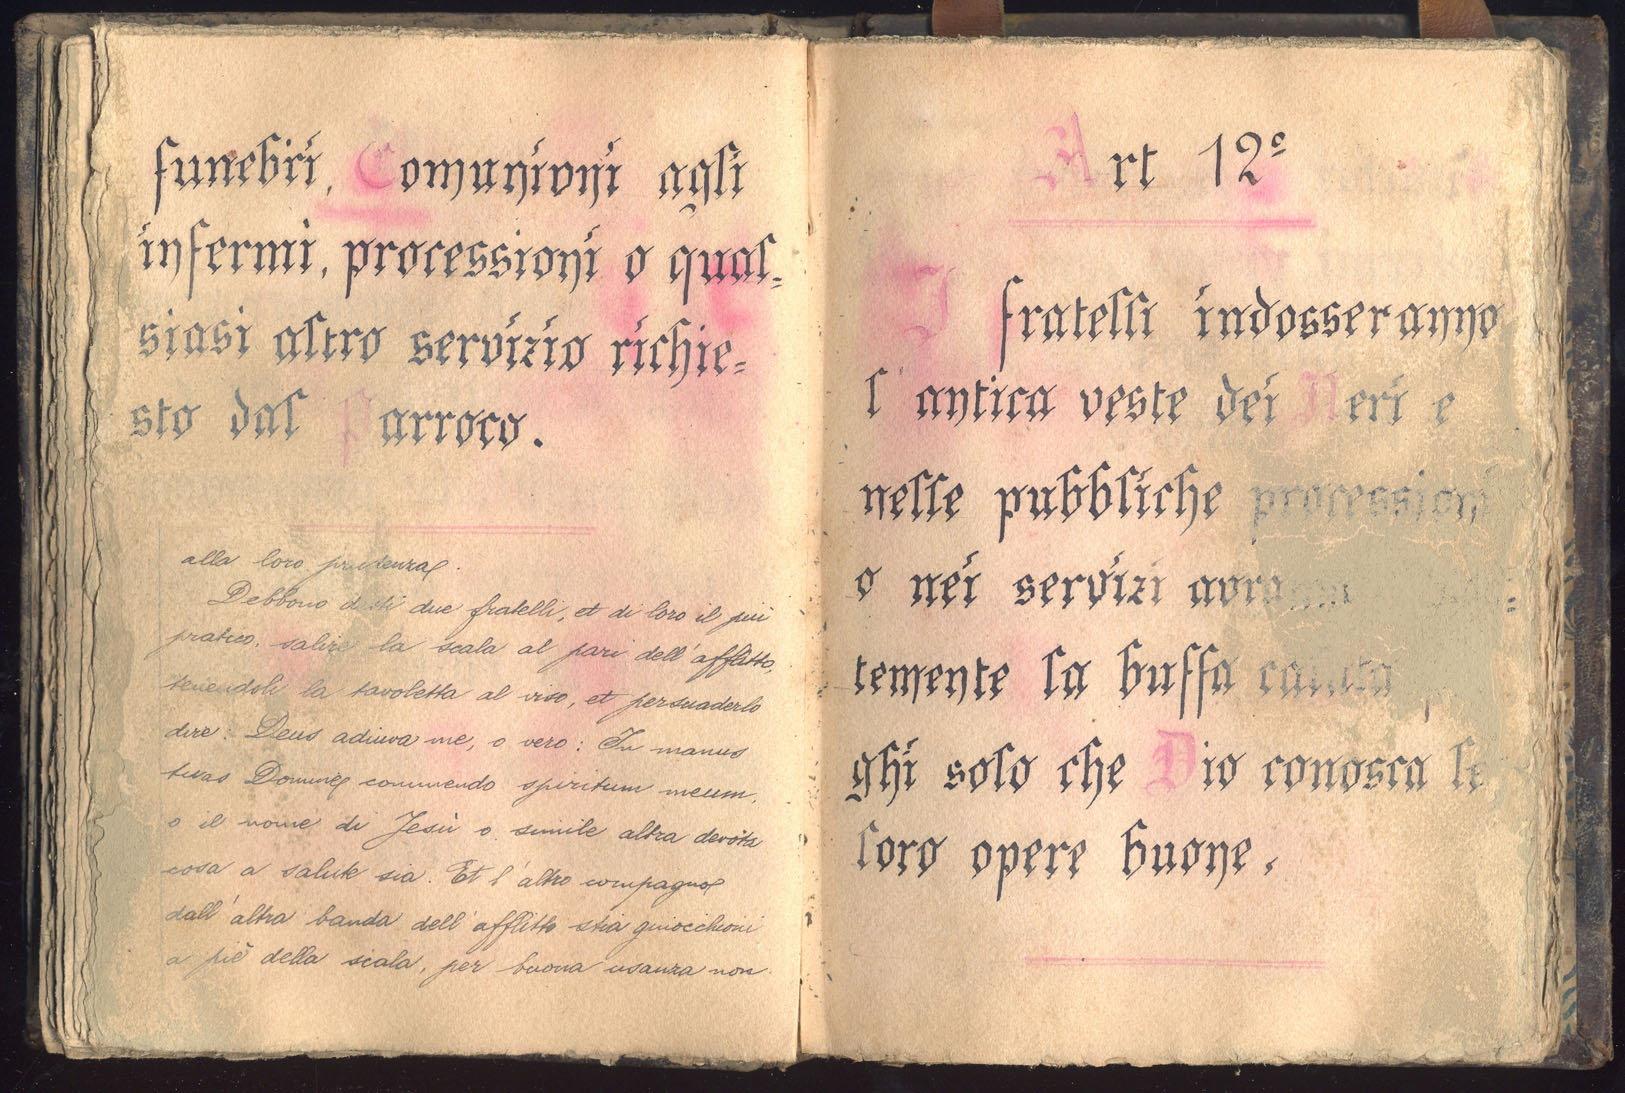 funebri, Comunioni agli
infermi, processioni o qual=
siasi altro servizio richie=
sto dal Parroco.
alla loro prudenza.
Debbono detti due fratelli, et di loro il più
pratico, salire la scala al pari dell'afflitto,
tenendoli la tavoletta al viso, et persuaderlo
dire: Deus adiuva me, o vero: In manus
tuas Domine commendo spiritum meum,
o il nome di Jesù o simile altra devota
cosa a salute sia. Et l'altro compagno
dall'altra banda dell'afflitto stia ginocchioni
a piè della scala, per buona usanza non
Art 12º
I fratelli indosseranno
l'antica veste dei Neri e
nelle pubbliche processioni
o nei servizi avranno
temente la buffa calata
ghi solo che Dio conosca le
loro opere buone.